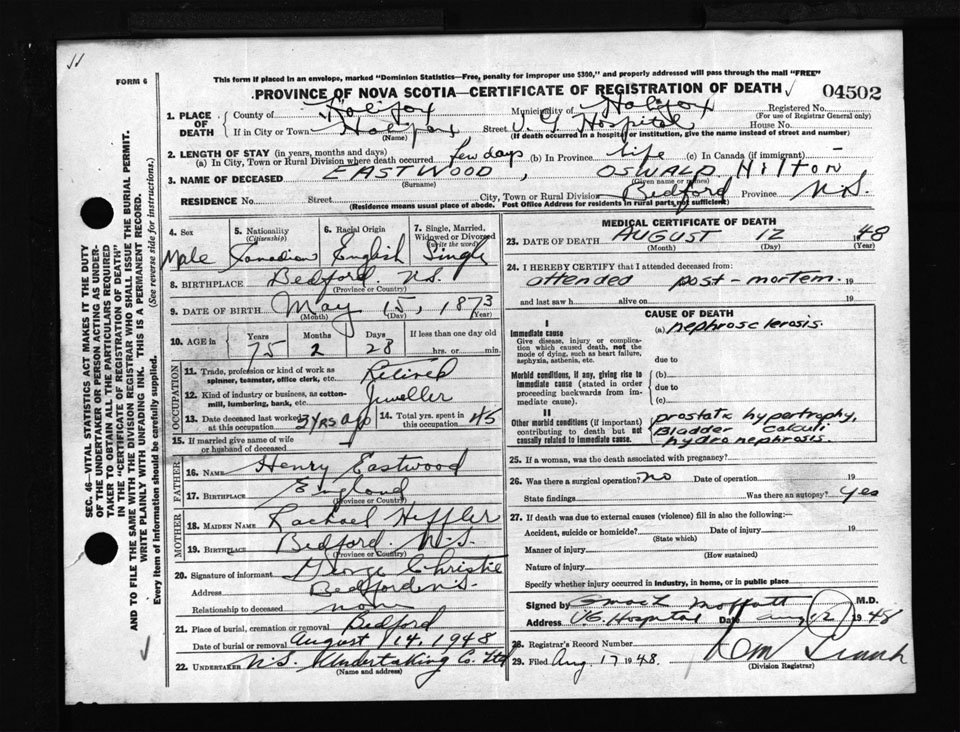 11
FORM 6
This form if placed in an envelope, marked "Dominion Statistics—Free, penalty for improper use $300," and properly addressed will pass through the mail "FREE"
PROVINCE OF NOVA SCOTIA—CERTIFICATE OF REGISTRATION OF DEATH 04502
SEC. 46—VITAL STATISTICS ACT MAKES IT THE DUTY
OF THE UNDERTAKER OR PERSON ACTING AS UNDER-
TAKER TO OBTAIN ALL THE PARTICULARS REQUIRED
IN THE "CERTIFICATE OF REGISTRATION OF DEATH"
AND TO FILE THE SAME WITH THE DIVISION REGISTRAR WHO SHALL ISSUE THE BURIAL PERMIT.
WRITE PLAINLY WITH UNFADING INK. THIS IS A PERMANENT RECORD.
Every item of Information should be carefully supplied. (See reverse side for instructions.)
1. PLACE OF DEATH
County of Halifax Municipality of Halifax Registered No.
(For use of Registrar General only)
If in City or Town Halifax Street V. G. Hospital House No.
(Name) (If death occurred in a hospital or institution, give the name instead of street and number)
2. LENGTH OF STAY (in years, months and days)
(a) In City, Town or Rural Division where death occurred few days (b) In Province life (c) In Canada (if immigrant) —
3. NAME OF DECEASED EASTWOOD, OSWALD Hilton
(Surname) (Given name or names)
RESIDENCE No. Street City, Town or Rural Division Bedford Province N.S.
(Residence means usual place of abode. Post Office Address for residents in rural parts not sufficient)
4. Sex 5. Nationality (Citizenship) 6. Racial Origin 7. Single, Married, Widowed or Divorced (write the word)
Male Canadian English Single
8. BIRTHPLACE Bedford. N.S.
(Province or Country)
9. DATE OF BIRTH May 15, 1873
(Month) (Day) (Year)
10. AGE in Years Months Days If less than one day old
75 2 28 hrs. or min.
OCCUPATION
11. Trade, profession or kind of work as
spinner, teamster, office clerk, etc. Retired
12. Kind of industry or business, as cotton-
mill, lumbering, bank, etc. Jeweller
13. Date deceased last worked at this occupation 3 yrs ago 14. Total yrs. spent in this occupation 45
15. If married give name of wife
or husband of deceased
FATHER
16. NAME Henry Eastwood
17. BIRTHPLACE England
(Province or Country)
MOTHER
18. MAIDEN NAME Rachael Heffler
19. BIRTHPLACE Bedford. N.S.
(Province or Country)
20. Signature of informant George Christie
Address Bedford N.S.
Relationship to deceased none
21. Place of burial, cremation or removal Bedford
Date of burial or removal August 14, 1948
22. UNDERTAKER N.S. Undertaking Co. Ltd
(Name and address)
MEDICAL CERTIFICATE OF DEATH
23. DATE OF DEATH AUGUST 12 48
(Month) (Day) (Year)
24. I HEREBY CERTIFY that I attended deceased from:
attended post-mortem. 19
and last saw h alive on 19
CAUSE OF DEATH
I
Immediate cause (a) nephrosclerosis.
Give disease, injury or complica-
tion which caused death, not the
mode of dying, such as heart failure,
asphyxia, asthenia, etc. due to
Morbid conditions, if any, giving rise to (b)
immediate cause (stated in order due to
proceeding backwards from im-
mediate cause). (c)
II
Other morbid conditions (if important)
contributing to death but not
causally related to immediate cause.
prostatic hypertrophy,
Bladder calculi
hydronephrosis.
25. If a woman, was the death associated with pregnancy?
26. Was there a surgical operation? no Date of operation 19
State findings Was there an autopsy? yes
27. If death was due to external causes (violence) fill in also the following:—
Accident, suicide or homicide? Date of injury 19
(State which)
Manner of injury
(How sustained)
Nature of injury
Specify whether injury occurred in industry, in home, or in public place
Signed by Moffatt M.D.
Address V.G. Hospital Date Aug 12 1948
28. Registrar's Record Number
29. Filed Aug. 17 1948.
(Division Registrar)